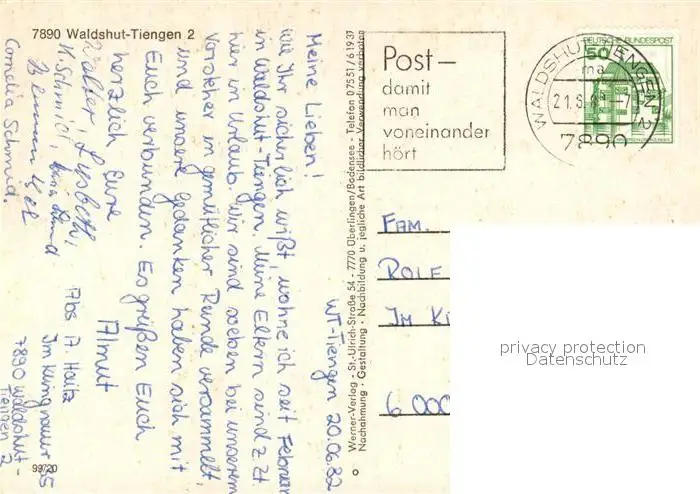 7890 Waldshut-Tiengen 2
WT-Tiengen 20.06.82
Meine Lieben!
Wie Ihr sicherlich wißt, wohne ich seit Februar
in Waldshut-Tiengen. Meine Eltern sind z.Zt.
hier in Urlaub. Wir sind soeben bei unserem
Vorsteher in gemütlicher Runde versammelt,
und unsere Gedanken haben sich mit
Euch verbunden. Es grüßen Euch
herzlich Eure Almut
Walter, Lisbeth,
H. Schmid,
Cornelia Schmid.
Abs A.
Im
7890 Waldshut-
Tiengen 2
99/20
Werner-Verlag - St.-Ulrich-Straße 54 - 7770 Überlingen/Bodensee - Telefon 07551/61937
Nachahmung - Gestaltung - Nachbildung u. jegliche Art bildlicher Verwendung verboten
Post –
damit
man
voneinander
hört
WALDSHUT-TIENGEN 2
ma
21.6.82-7
7890
DEUTSCHE BUNDESPOST
50
FAM.
ROLF
IM KI
6 000
privacy protection
Datenschutz